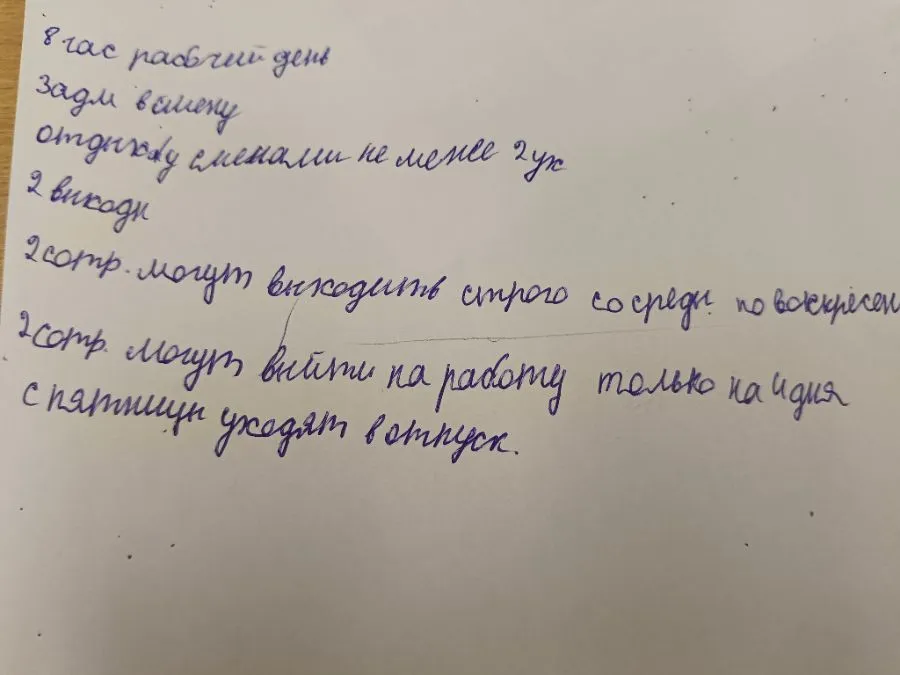 8 час рабочий день
3 адм в смену
отдых м/у сменами не менее 24х
2 выходн
2 сотр. могут выходить строго со среды по воскресен
2 сотр. могут выйти на работу только на 4 дня
с пятницы уходят в отпуск.